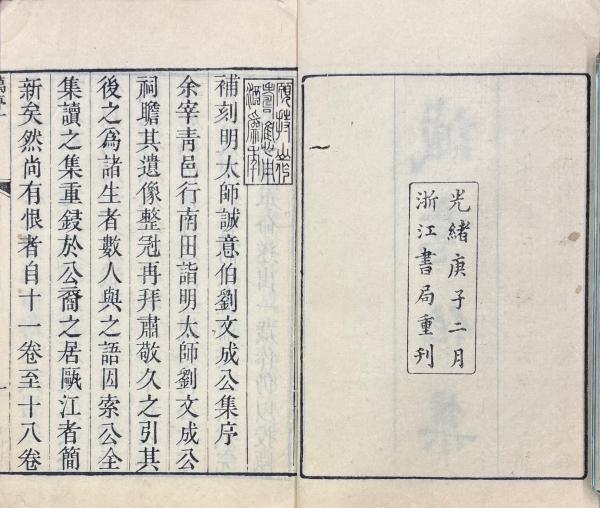 光緒庚子二月
浙江書局重刊
補刻明太師誠意伯劉文成公集序
余宰青邑行南田詣明太師劉文成公
祠瞻其遺像整冠再拜肅敬久之引其
後之爲諸生者數人與之語因索公全
集讀之集重鋟於公裔之居甌江者簡
新矣然尚有恨者自十一卷至十八卷